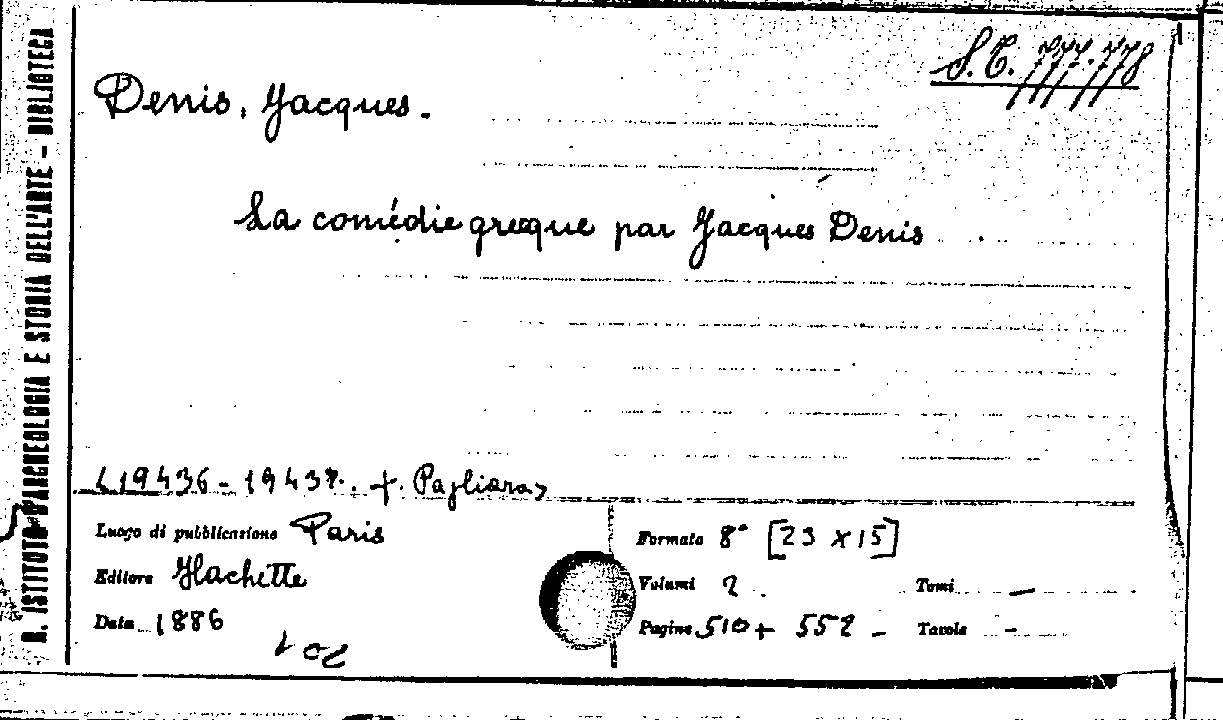 R. ISTITUTO D'ARCHEOLOGIA E STORIA DELL'ARTE - BIBLIOTECA
S.C. 777.778
Denis, Jacques.
La comédie grecque par Jacques Denis
(19436-19437. f. Pagliara)
Luogo di pubblicazione Paris
Editore Hachette
Data 1886
Formato 8° [23 x 15]
Volumi 2. Tomi —
Pagine 510 + 552 - Tavole -